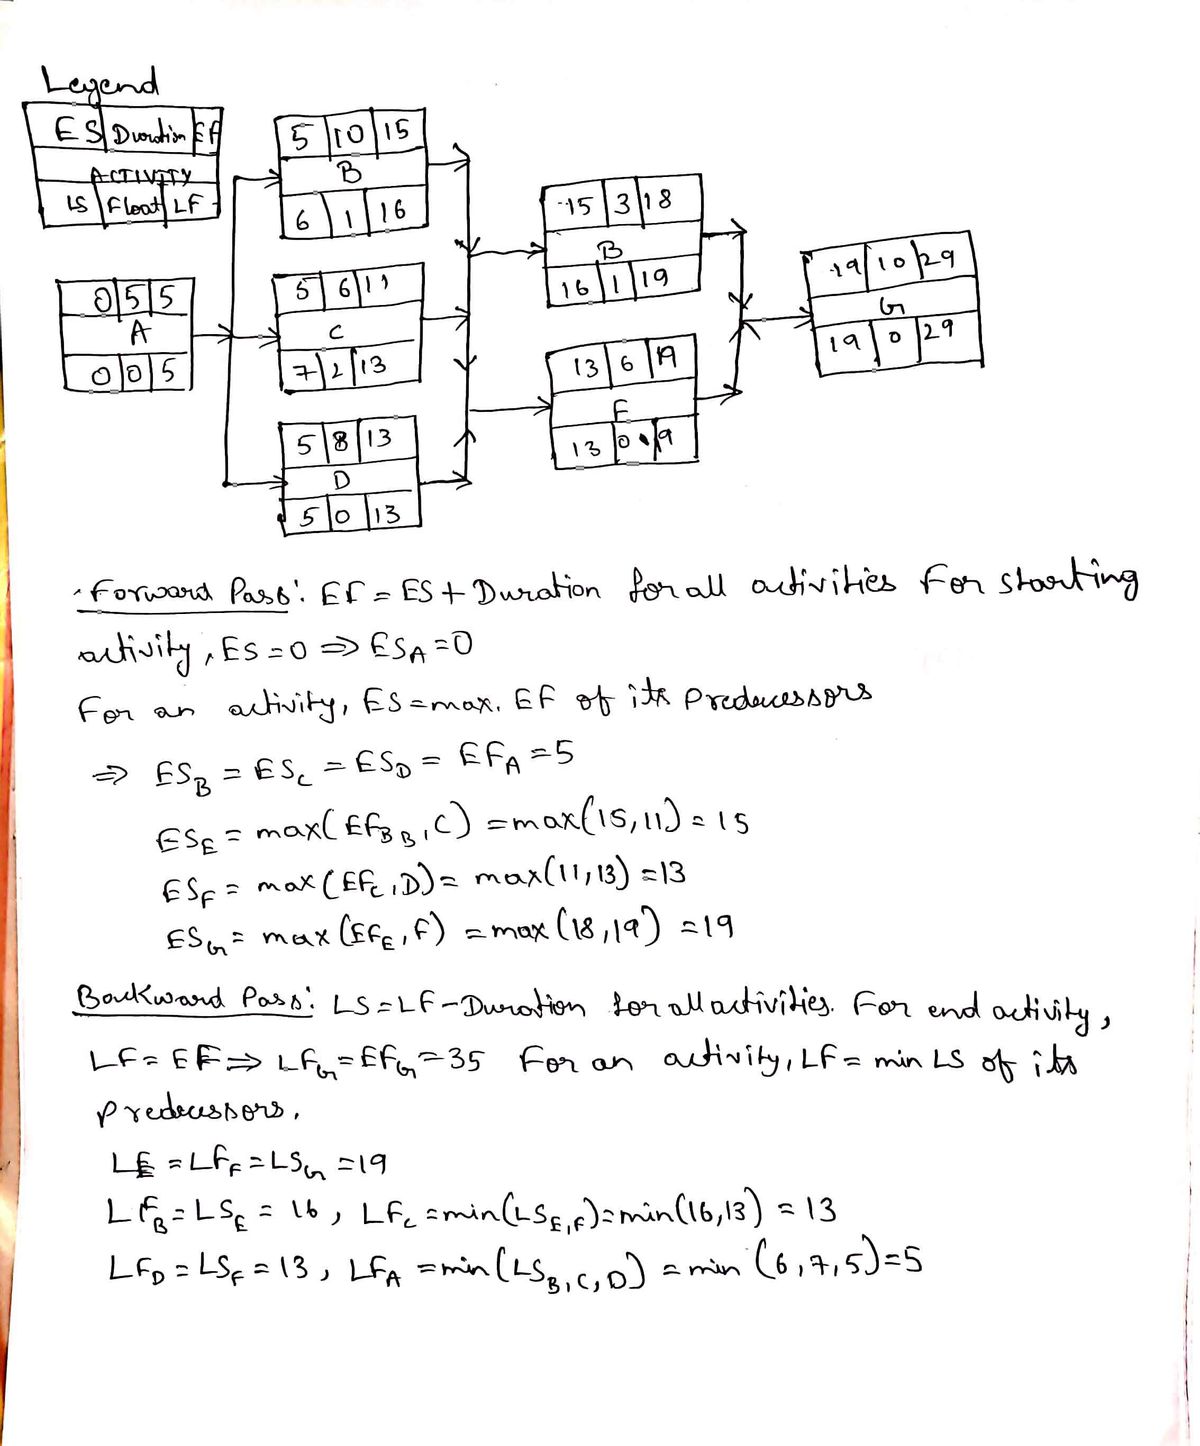 Legend
ES Duration EF
ACTIVITY
LS Float LF
0 5 5
A
0 0 5
5 10 15
B
6 1 16
5 6 11
C
7 2 13
5 8 13
D
5 0 13
15 3 18
B
16 1 19
13 6 19
F
13 0 19
19 10 29
G
19 0 29
Forward Pass: EF = ES + Duration for all activities For starting
activity, ES = 0 ⇒ ES_A = 0
For an activity, ES = max. EF of its Predecessors
⇒ ES_B = ES_C = ES_D = EF_A = 5
ES_E = max(EF_B B, C) = max(15, 11) = 15
ES_F = max(EF_C, D) = max(11, 13) = 13
ES_G = max(EF_E, F) = max(18, 19) = 19
Backward Pass: LS = LF - Duration for all activities. For end activity,
LF = EF ⇒ LF_G = EF_G = 35 For an activity, LF = min LS of its
predecessors.
LE = LF_F = LS_G = 19
LF_B = LS_E = 16, LF_C = min(LS_E,F) = min(16,13) = 13
LF_D = LS_F = 13, LF_A = min(LS_B,C,D) = min (6,7,5) = 5